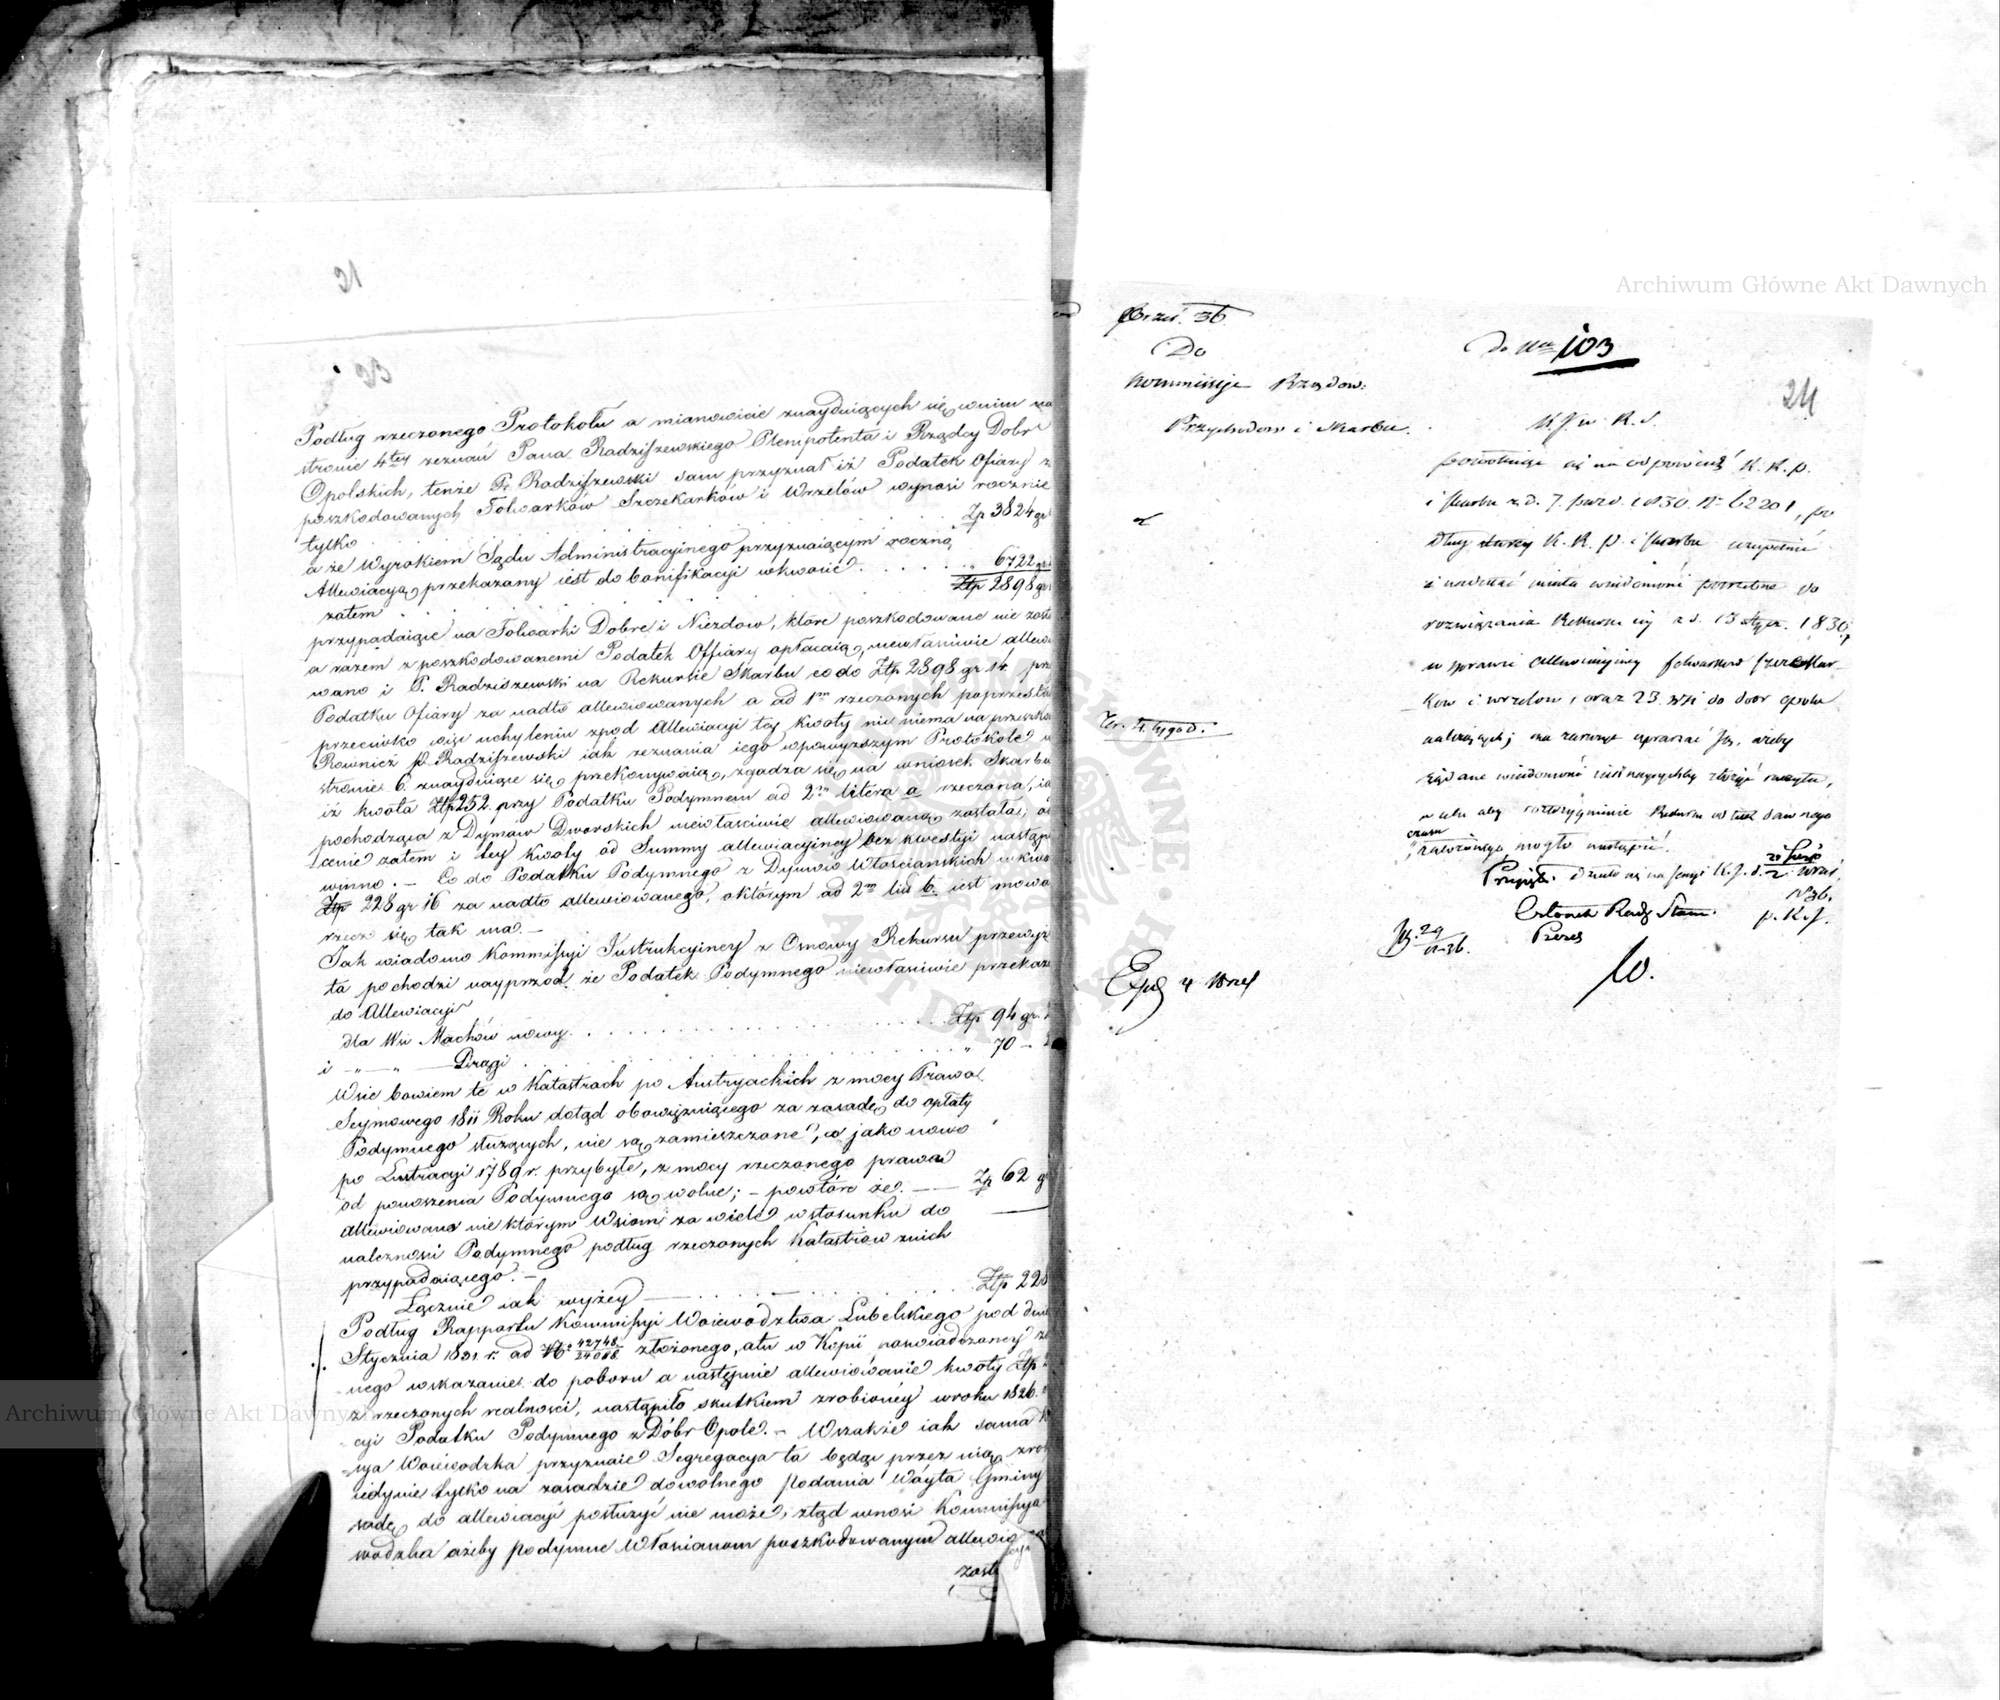 Podług rzeczonego Protokołu a mianowicie znayduiących się w nim na
stronie 4tey zeznań Pana Radziszewskiego Plenipotenta i Rządcy Dobr
Opolskich, tenże P. Radziszewski sam przyznał iż Podatek Ofiary z
poszkodowanych Folwarków Szczekarków i Wrzelów wynosi rocznie
tylko . . . Zp 3824 gr
a że Wyrokiem Sądu Administracyinego przyznaiącym roczną
Allewiacyą przekazany iest do bonifikacyi w kwocie . . . . . " 6722 gr
zatem . . . Ztp 2898 gr
przypadaiące na Folwarki Dobre i Niezdow, które poszkodowane nie zosta
a razem z poszkodowanemi Podatek Offiary opłacaią, niewłaściwie allewio
wano i P. Radziszewski na Rekursie Skarbu co do Ztp 2898 gr prz
Podatku Ofiary za nadto allewiowanych a ad 1m rzeczonych poprzesta
przeciwko więc uchyleniu zpod Allewiacyi tey kwoty nic niema na przeszko
Rownież P. Radziszewski iak zeznania iego w powyższym Protokole
stronie 6. znayduiące się przekonywaią, zgadza się na wniosek Skarbu
iż kwota Ztp 252 przy Podatku Podymnem ad 2m litera a rzeczona, ia
pochodząca z Dymów Dworskich niewłaściwie allewiowaną została; o
cenie zatem i tey kwoty od Summy allewiacyiney bez kwestyi nastąp
winno. – Co do Podatku Podymnego z Dymów Włościanskich w kwo
Ztp 228 gr 16 za nadto allewiowanego, o którym ad 2m lit b. iest mowa
rzecz się tak ma. –
Jak wiadomo Kommissyi Instrukcyiney z Osnowy Rekursu przewyż
ta pochodzi nayprzod że Podatek Podymnego niewłaściwie przekaza
do Allewiacyi
dla Wsi Machów nowy . . . Ztp 94 gr.
i – " – " – Dragi . . . " 70 –
Wsie bowiem te w Katastrach po Austryackich z mocy Prawa
Seymowego 1811 Roku dotąd obowiązuiącego za zasadę do opłaty
Podymnego służących, nie są zamieszczone, a jako nowo
po Lustracyi 1789 r. przybyłe, z mocy rzeczonego prawa
od ponoszenia Podymnego są wolne; – powtóre że – – Zp 62 g
allewiowano nie którym Wsiom za wiele w stosunku do
należnosci Podymnego podług rzeczonych Katastrow z nich
przypadaiącego. –
Łącznie iak wyżey – . . . Ztp 228
Podług Rapportu Kommissyi Woiewodztwa Lubelskiego pod dnie
Stycznia 1831 r. ad No 42748/24088 złożonego, a tu w Kopii poswiadczoney
nego wskazanie do poboru a następnie allewiowanie kwoty Ztp
z rzeczonych realnosci, nastąpiło skutkiem zrobioney w roku 1826.
cyi Podatku Podymnego z Dóbr Opole. – Wszakże iak sama K
sya Woiewodzka przyznaie Segregacya ta będąc przez nią zrob
iedynie tylko na zasadzie dowolnego podania Wóyta Gminy
sadę do allewiacyi posłużyć nie może, ztąd wnosi Kommissya
wodzka ażeby podymne Włoscianom poszkodowanym allewio
zosta
Wrześ. 36
Do
Kommissyi Rządow:
Przychodow i Skarbu.
Do Nru 103
24
K. J. w K. S.
powołuiąc się na odpowiedź K. R. P.
i Skarbu z d. 7. Paźd. 1830. N 62201, po
dług K. R. P. i Skarbu uzupełnić
i nadesłać miała wiadomość potrzebne do
rozwiązania Rekursu iey z d. 13 Stycz. 1830,
w sprawie allewiacyiney folwarkow Szczekar
kow i Wrzelow, oraz 23. wsi do dobr Opole
należących; ma zaszczyt upraszać Jey, ażeby
żądane wiadomości iak nayrychley złożyć raczyła,
w celu aby rozstrzygnienie Rekursu od tak dawnego
czasu
zawieszonego mogło nastąpić.
Ter. 4. tygod.
Przyięto. działo się na Sessyi K. J. d. 2 Wrześ.
N 36.
Członek Rady Stanu p. K. J.
Prezes
29
Exped 4 Wrześ